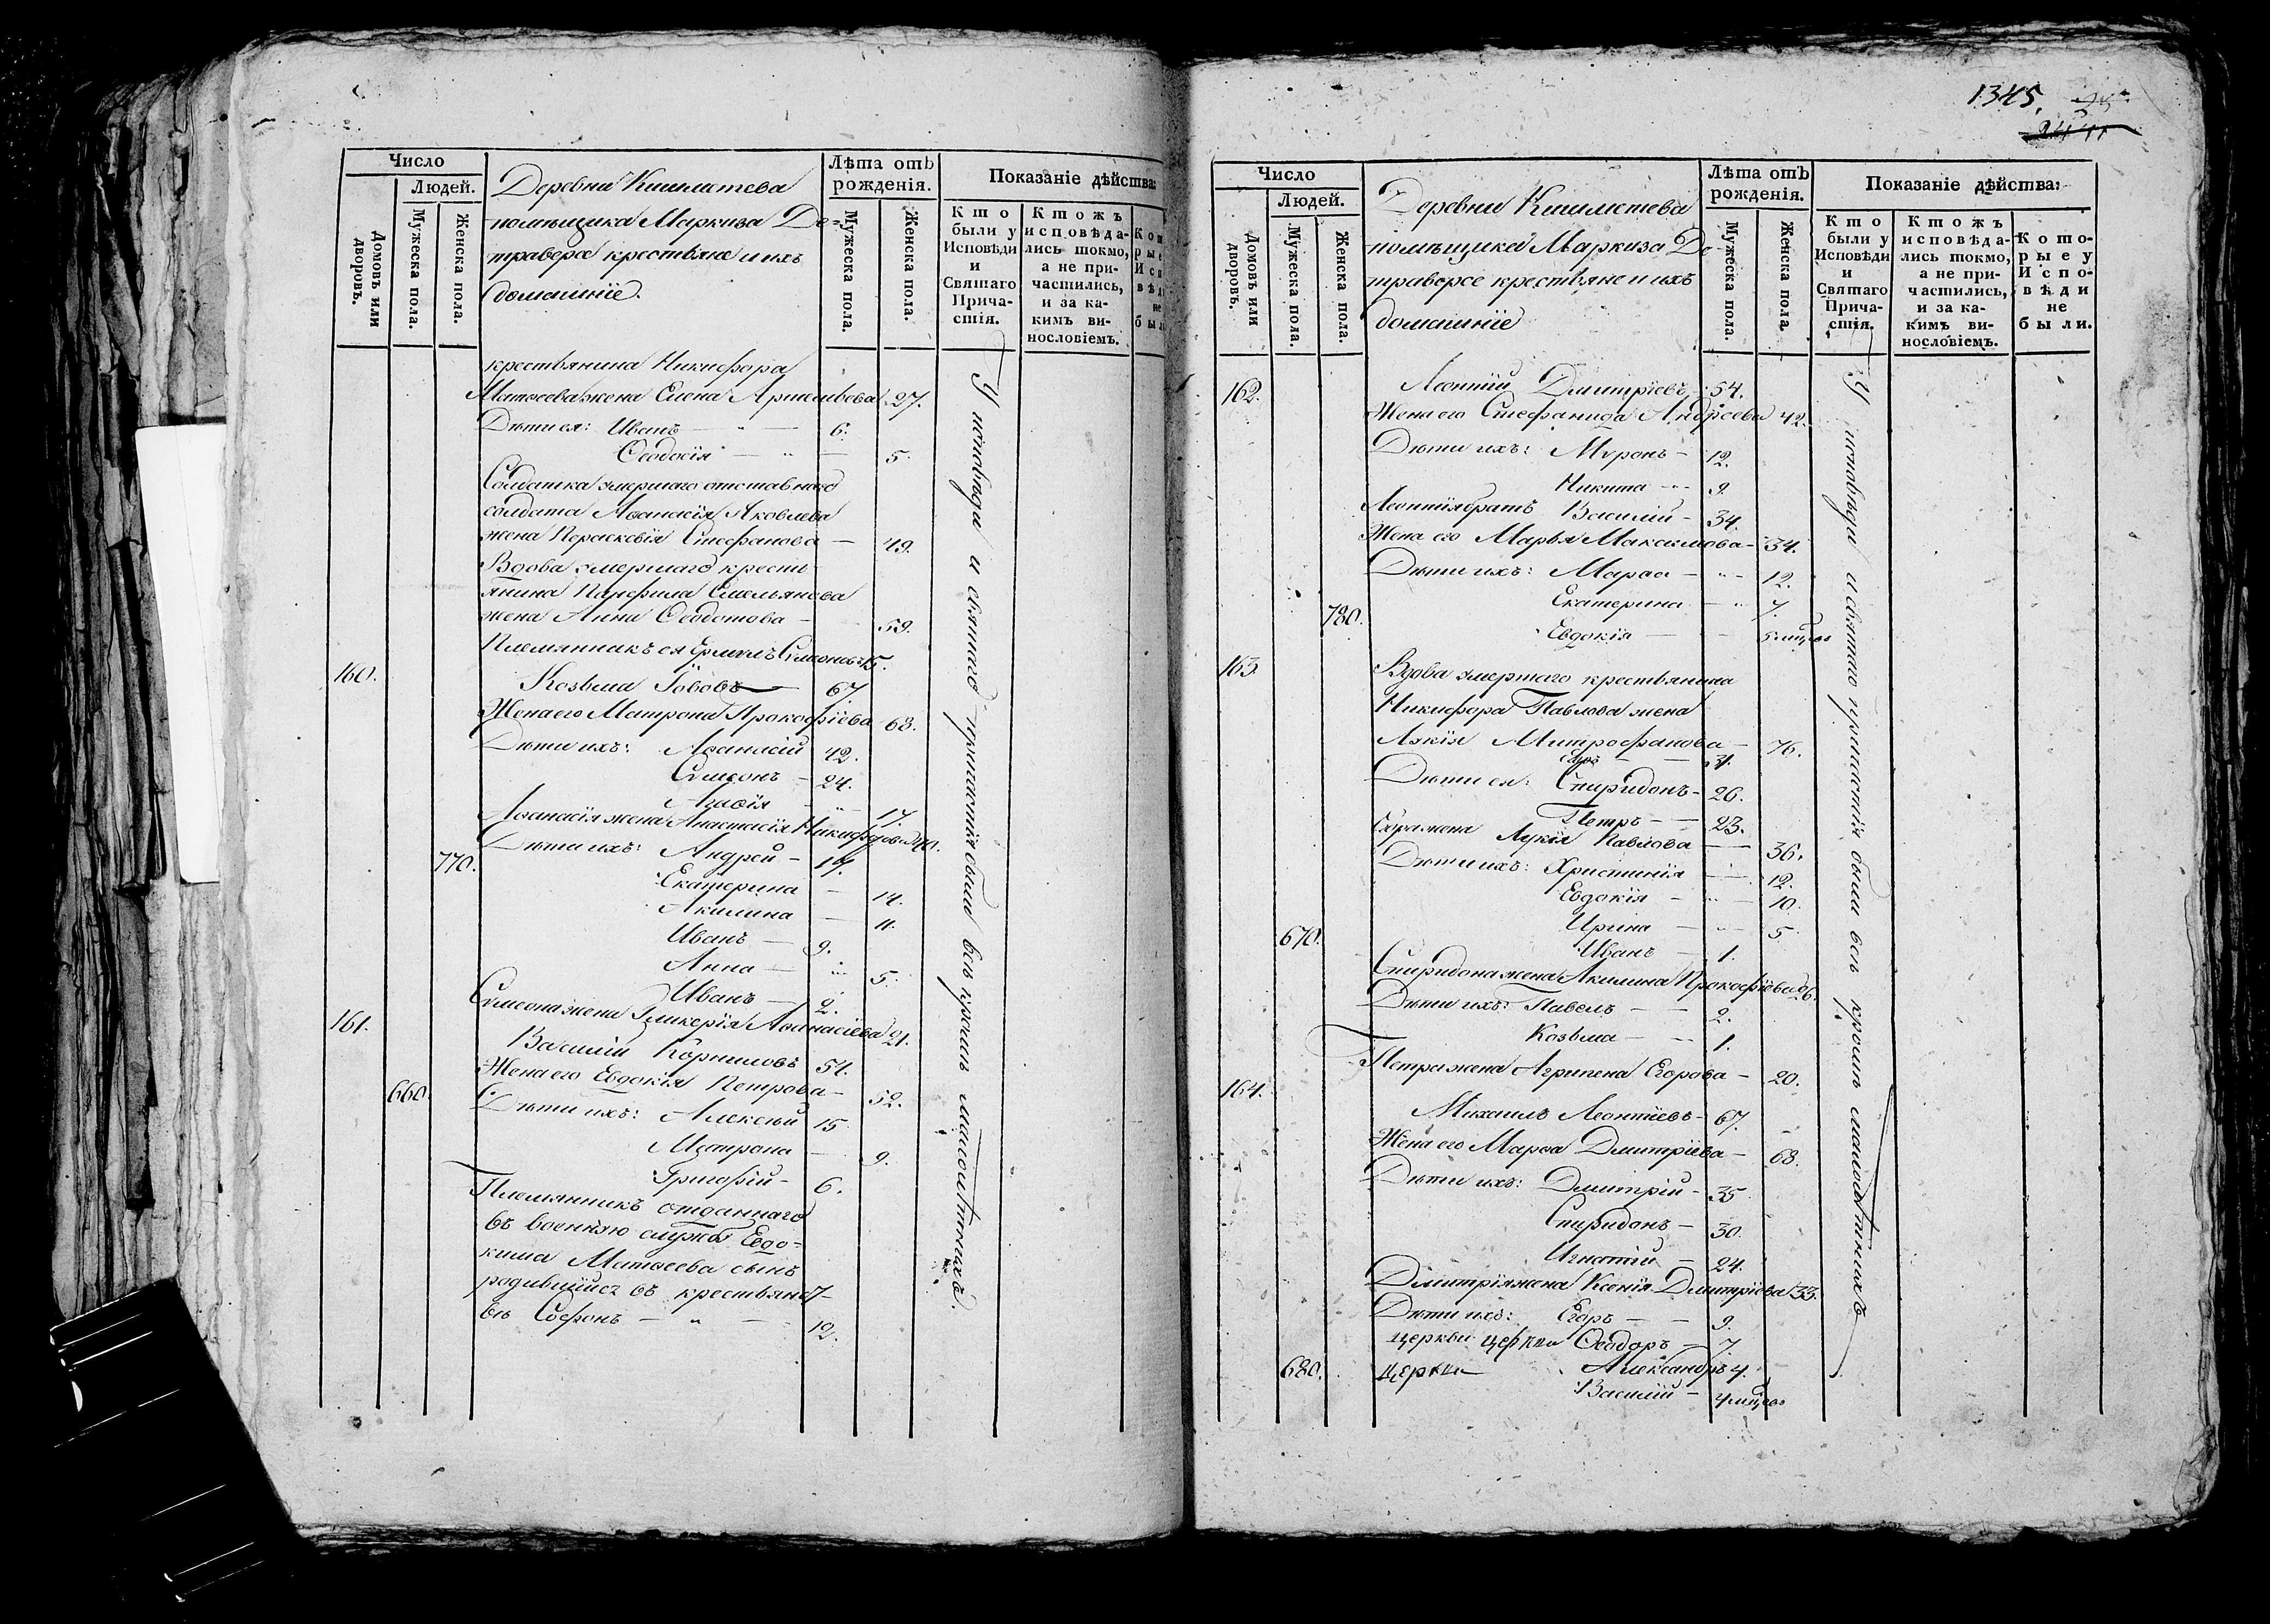 Число
Людей.
Домовъ или дворовъ.
Мужеска пола.
Женска пола.
Деревни Кишмстева
помѣщика Маркиза Де=
траверсе крестьяне и ихъ
домашніе.
Лѣта отъ рожденія.
Мужеска пола.
Женска пола.
Показаніе дѣйства:
Кто были у Исповѣди и Святаго Причастія.
Ктожъ исповѣдались токмо, а не причастились, и за какимъ винословіемъ.
крестьянина Никифора
Матвеева жена Елена Артемьева 27.
Дѣти ея: Иванъ — 6.
Ѳеодосія — 5.
Солдатка умершаго отставнаго
солдата Аѳанасія Яковлева
жена Параскевія Стефанова — 49.
Вдова умершаго кресть
янина Панфила Емельянова
жена Анна Ѳеодотова — 59.
Племянникъ ея Ермилъ Симоновъ 15.
160. Козьма Іововъ — 67.
Жена его Матрона Прокофіева 63.
Дѣти ихъ: Аѳанасій 42.
Симеонъ — 24.
Агаѳія — 17.
Аѳанасія жена Анастасія Никифорова 40.
Дѣти ихъ: Андрей — 19.
770. Екатерина — 14.
Акилина — 11.
Иванъ — 9.
Анна — 5.
Иванъ — 2.
Симеона жена Гликерія Аѳанасіева 21.
161. Василій Корниловъ 54.
Жена его Евдокія Петрова — 52.
660. Дѣти ихъ: Алексѣй 15
Матрона — 9.
Григорій — 6.
Племянникъ отданнаго
въ военную службу Евдо=
кима Матвеева сынъ
родившійся въ крестьянст=
вѣ Софонъ — 12.
У исповѣди и святаго причастія были всѣ кромѣ малолѣтнихъ
1345.
Число
Людей.
Домовъ или дворовъ.
Мужеска пола.
Женска пола.
Деревни Кишмстева
помѣщика Маркиза Де
траверсе крестьяне и ихъ
домашніе
Лѣта отъ рожденія.
Мужеска пола.
Женска пола.
Показаніе дѣйства:
Кто были у Исповѣди и Святаго Причастія.
Ктожъ исповѣдались токмо, а не причастились, и за какимъ винословіемъ.
Которые у Исповѣди не были.
162. Леонтій Дмитріевъ 54.
Жена его Стефанида Андреева 42.
Дѣти ихъ: Мѵронъ — 12.
Никита — 9.
Леонтія братъ Василій — 34.
Жена его Марья Максимова — 34.
Дѣти ихъ: Марѳа — 12.
Екатерина — 7.
780. Евдокія — 5 мцовъ
163. Вдова умершаго крестьянина
Никифора Павлова жена
Лукія Митрофанова — 76.
31.
Дѣти ея: Спиридонъ — 26.
Петръ — 23.
жена Лукія Павлова — 36.
Дѣти ихъ: Христинія — 12.
Евдокія — 10.
Ирина — 5
670. Иванъ — 1.
Спиридона жена Акилина Прокофіева 26.
Дѣти ихъ: Павелъ — 2.
Козьма — 1.
Петра жена Агрипена Егорова — 20.
164. Михаилъ Леонтіевъ — 67.
Жена его Марѳа Дмитріева — 68.
Дѣти ихъ: Дмитрій — 35
Спиридонъ — 30.
Игнатій — 24.
Дмитрія жена Ксенія Дмитріева 33.
Дѣти ихъ: Егоръ — 9.
церкви церкви Ѳеодоръ — 7.
680. церкви Александръ 4.
Василій — 4 мцовъ
У исповѣди и святаго причастія были всѣ кромѣ малолѣтнихъ